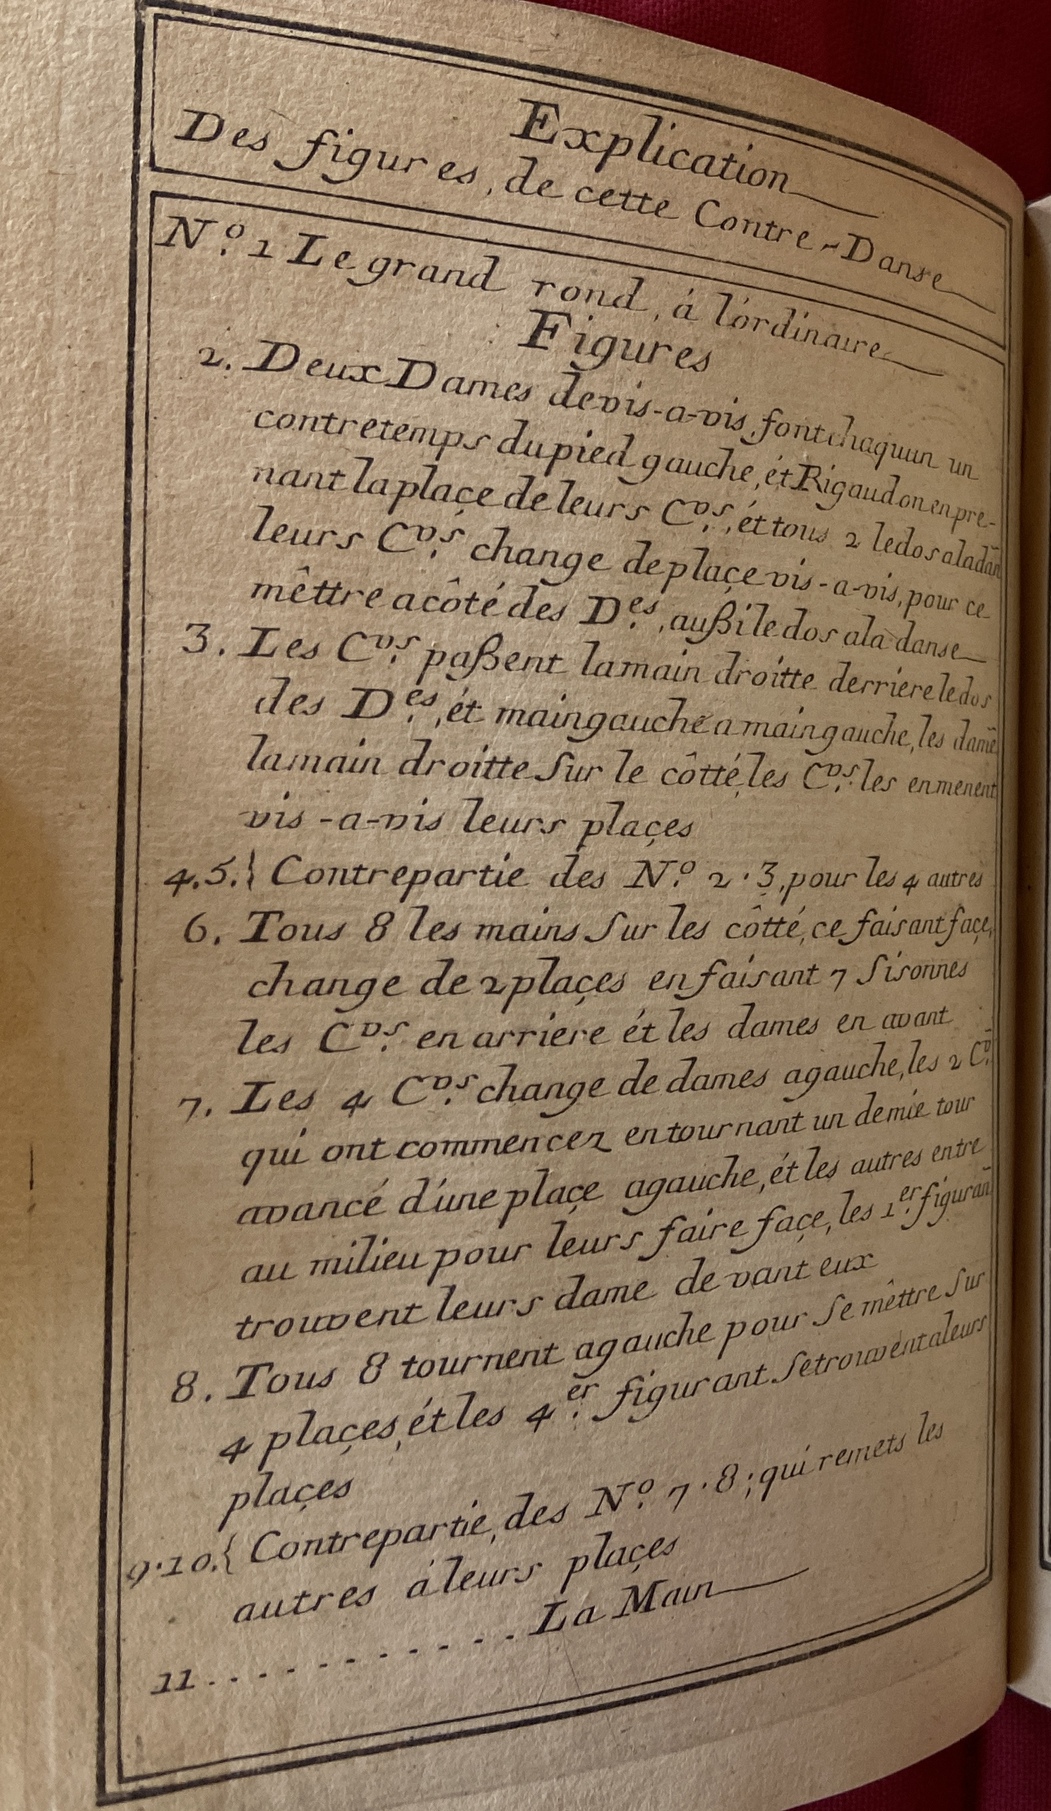 Explication
Des figures, de cette Contre-Danse
N.º 1 Le grand rond, á l'ordinaire
Figures
2. Deux Dames devis-a-vis, font chaquun un
contretemps du pied gauche, ét Rigaudon en pre-
nant la plaçe de leurs C.ᵛˢ, ét tous 2 le dos a la dan
leurs C.ᵛˢ change de plaçe vis-a-vis, pour ce
mêttre a côté des D.ᵉˢ, außi le dos a la danse
3. Les C.ᵛˢ paßent la main droitte derriere le dos
des D.ᵉˢ, ét main gauche a main gauche, les dame
la main droitte sur le côtté, les C.ᵛˢ les enmenent
vis-a-vis leurs plaçes
4.5.} Contrepartie des N.º 2.3, pour les 4 autres
6. Tous 8 les mains sur les côtté, ce faisant façe,
change de 2 plaçes en faisant 7 sisonnes
les C.ᵛˢ en arriere ét les dames en avant
7. Les 4 C.ᵛˢ change de dames a gauche, les 2 C.ᵛˢ
qui ont commencez en tournant un demie tour
avancé d'une plaçe a gauche, ét les autres entre
au milieu pour leurs faire façe, les 1.ᵉʳ figuran
trouvent leurs dame devant eux
8. Tous 8 tournent a gauche pour se mêttre sur
4 plaçes, ét les 4.ᵉʳ figurant se trouvent a leurs
plaçes
9.10.{ Contrepartie, des N.º 7.8; qui remets les
autres á leurs plaçes
11 . . . . . . . . . . La Main